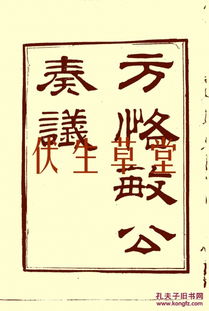 方恪敏公
奏議
伏生草堂
孔夫子旧书网
www.kongfz.com